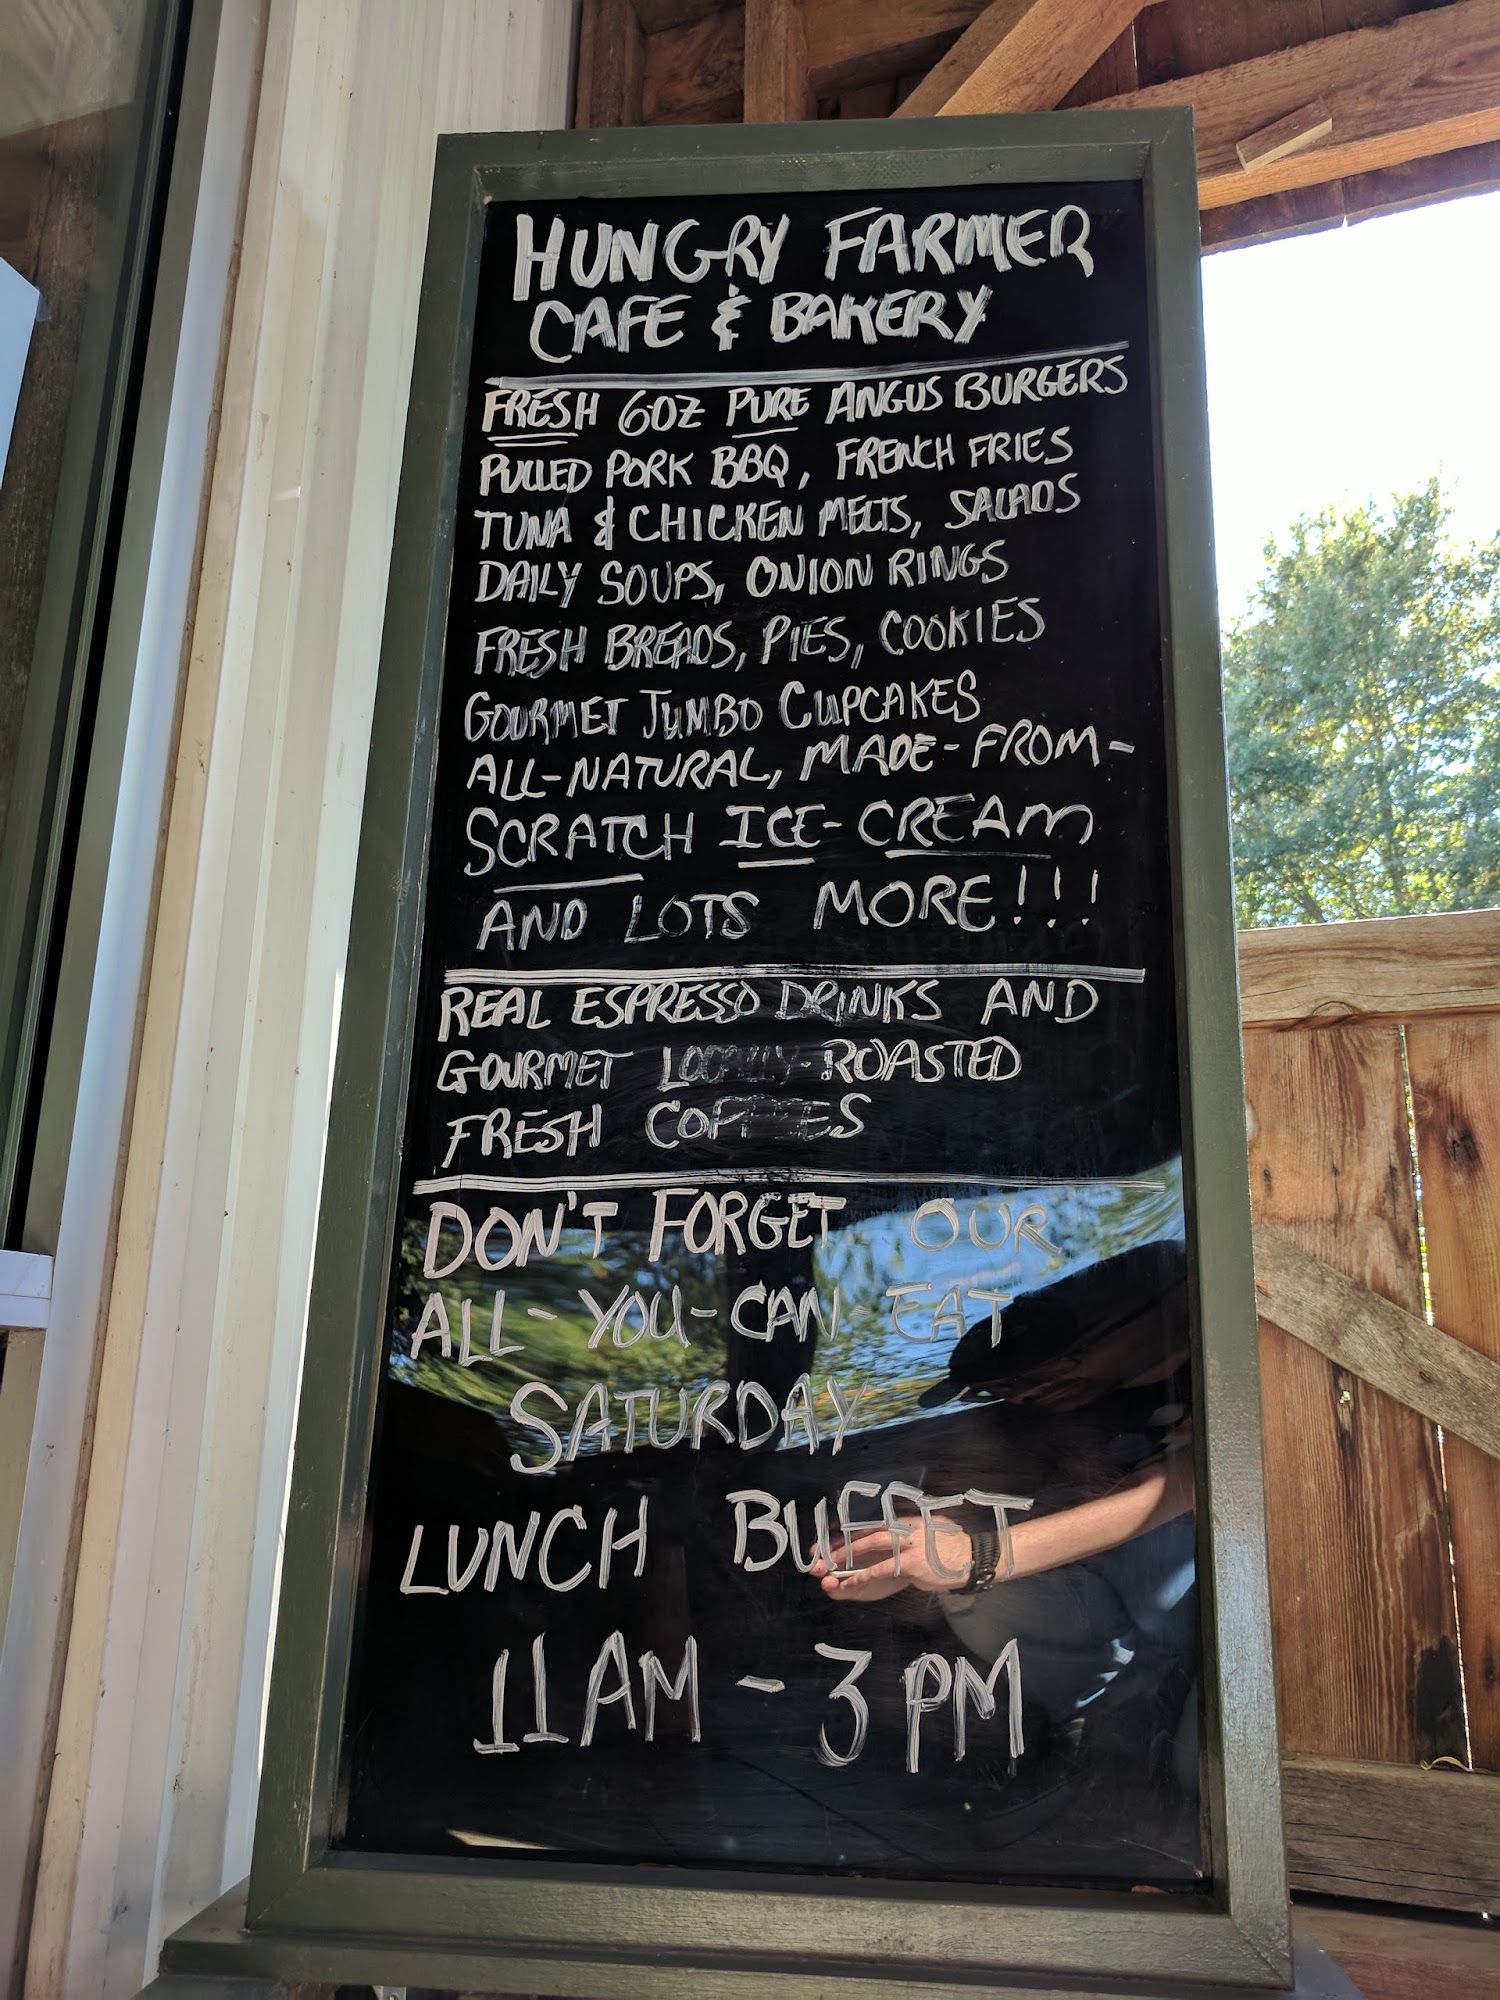 HUNGRY FARMER
CAFE & BAKERY
FRESH 6OZ PURE ANGUS BURGERS
PULLED PORK BBQ, FRENCH FRIES
TUNA & CHICKEN MELTS, SALADS
DAILY SOUPS, ONION RINGS
FRESH BREADS, PIES, COOKIES
GOURMET JUMBO CUPCAKES
ALL-NATURAL, MADE-FROM-
SCRATCH ICE-CREAM
AND LOTS MORE!!!
REAL ESPRESSO DRINKS AND
GOURMET LOCALLY-ROASTED
FRESH COFFEES
DON'T FORGET OUR
ALL-YOU-CAN-EAT
SATURDAY
LUNCH BUFFET
11AM - 3PM